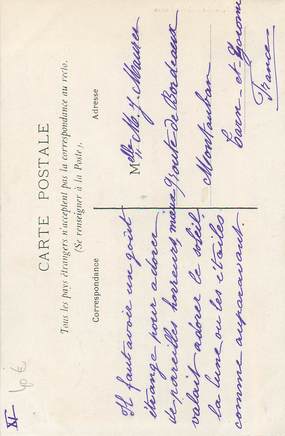 CARTE POSTALE
Tous les pays étrangers n'acceptent pas la correspondance au recto.
(Se renseigner à la Poste).
Correspondance
Adresse
Il faut avoir un goût
étrange pour adorer
de pareilles horreurs, mieux
valait adorer le soleil
la lune ou les étoiles
comme auparavant.
Mlle M. J.
route de Bordeaux
Montauban
Tarn-et-Garonne
France
40 €